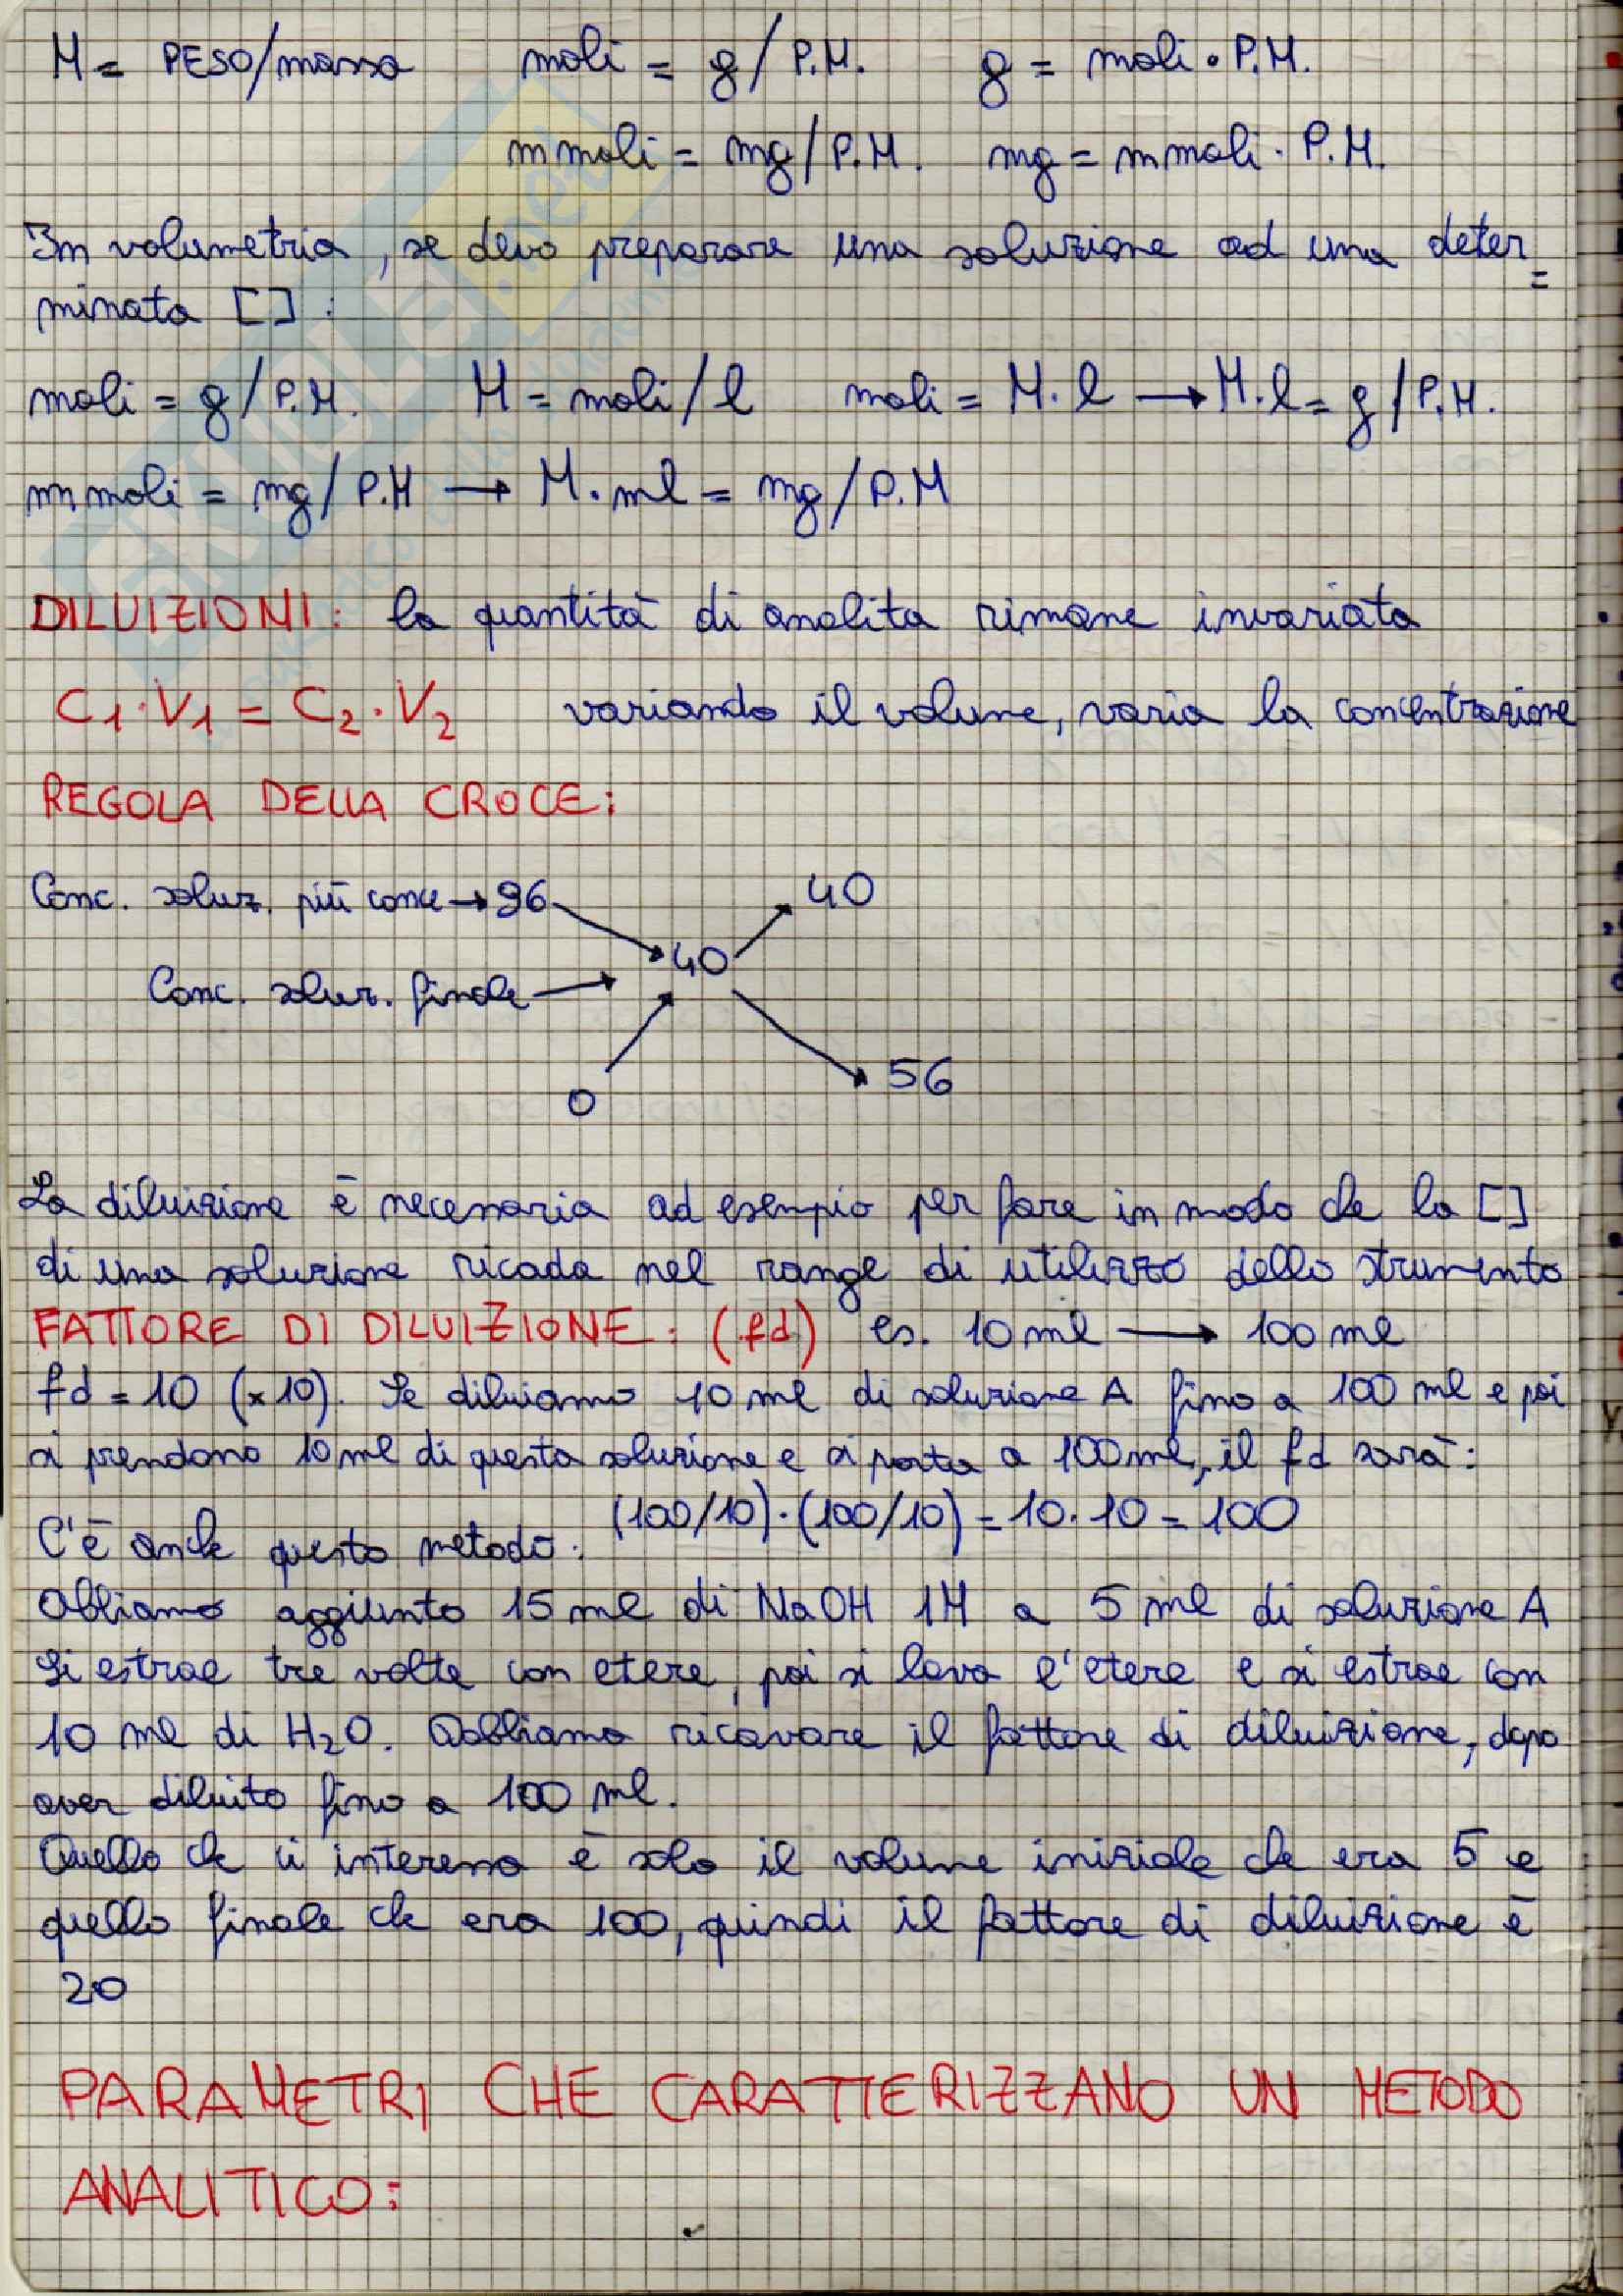 M = PESO/massa moli = g/P.M. g = moli • P.M.
mmoli = mg/P.M. mg = mmoli · P.M.
In volumetria, se devo preparare una soluzione ad una deter=
minata []:
moli = g/P.M. M = moli/l moli = M·l → M·l = g/P.M.
mmoli = mg/P.M → M·ml = mg/P.M
DILUIZIONI: la quantità di analita rimane invariata
C1·V1 = C2·V2 variando il volume, varia la concentrazione
REGOLA DELLA CROCE:
Conc. soluz. più conc → 96 40
40
Conc. soluz. finale →
0 56
La diluizione è necessaria ad esempio per fare in modo che la []
di una soluzione ricada nel range di utilizzo dello strumento
FATTORE DI DILUIZIONE: (fd) es. 10 ml → 100 ml
fd = 10 (x10). Se diluiamo 10 ml di soluzione A fino a 100 ml e poi
si prendono 10 ml di questa soluzione e si porta a 100 ml, il fd sarà:
(100/10)·(100/10) = 10·10 = 100
C'è anche questo metodo:
Abbiamo aggiunto 15 ml di NaOH 1M a 5 ml di soluzione A
Si estrae tre volte con etere, poi si lava l'etere e si estrae con
10 ml di H2O. Dobbiamo ricavare il fattore di diluizione, dopo
aver diluito fino a 100 ml.
Quello che ci interessa è solo il volume iniziale che era 5 e
quello finale che era 100, quindi il fattore di diluizione è
20
PARAMETRI CHE CARATTERIZZANO UN METODO
ANALITICO: